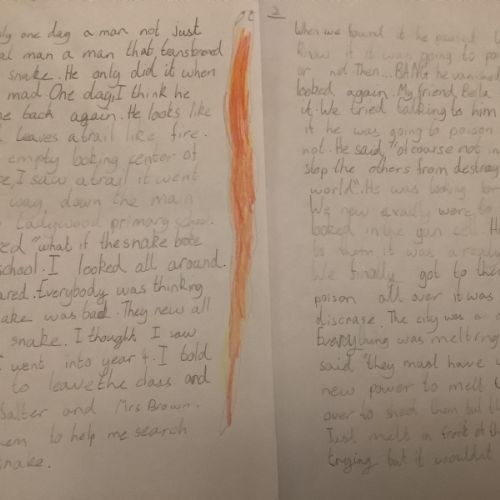 ly one day a man not just
al man a man that transbromd
snake. He only did it when
mad. One day, I think he
e back again. He looks like
leaves a trail like fire.
empty looking center of
e, I saw a trail it went
way down the main
Ladywood primary school.
ed "what if the snake bote
school. I looked all around.
ared. Everybody was thinking
ake was bad. They new all
snake. I thought I saw
I went into year 4. I told
to leave the class and
Salter and Mrs Brown.
em to help me search
snake.
2
When we found it he paused
know if it was going to poi
or not. Then... BANG he vanished
looked again. My friend Bella
it. We tried talking to him
if he was going to poison
not. He said "of coarse not in
stop the others from destroy
world". He was looking
We now exactly were to
looked in the gun cell. H
to them it was a
We finally got to the
poison all over it was
discrase. The city was a d
Everything was meltring
said "they must have
new power to melt
over to shoot them but th
Just melt in front of
trying but it wouldnt